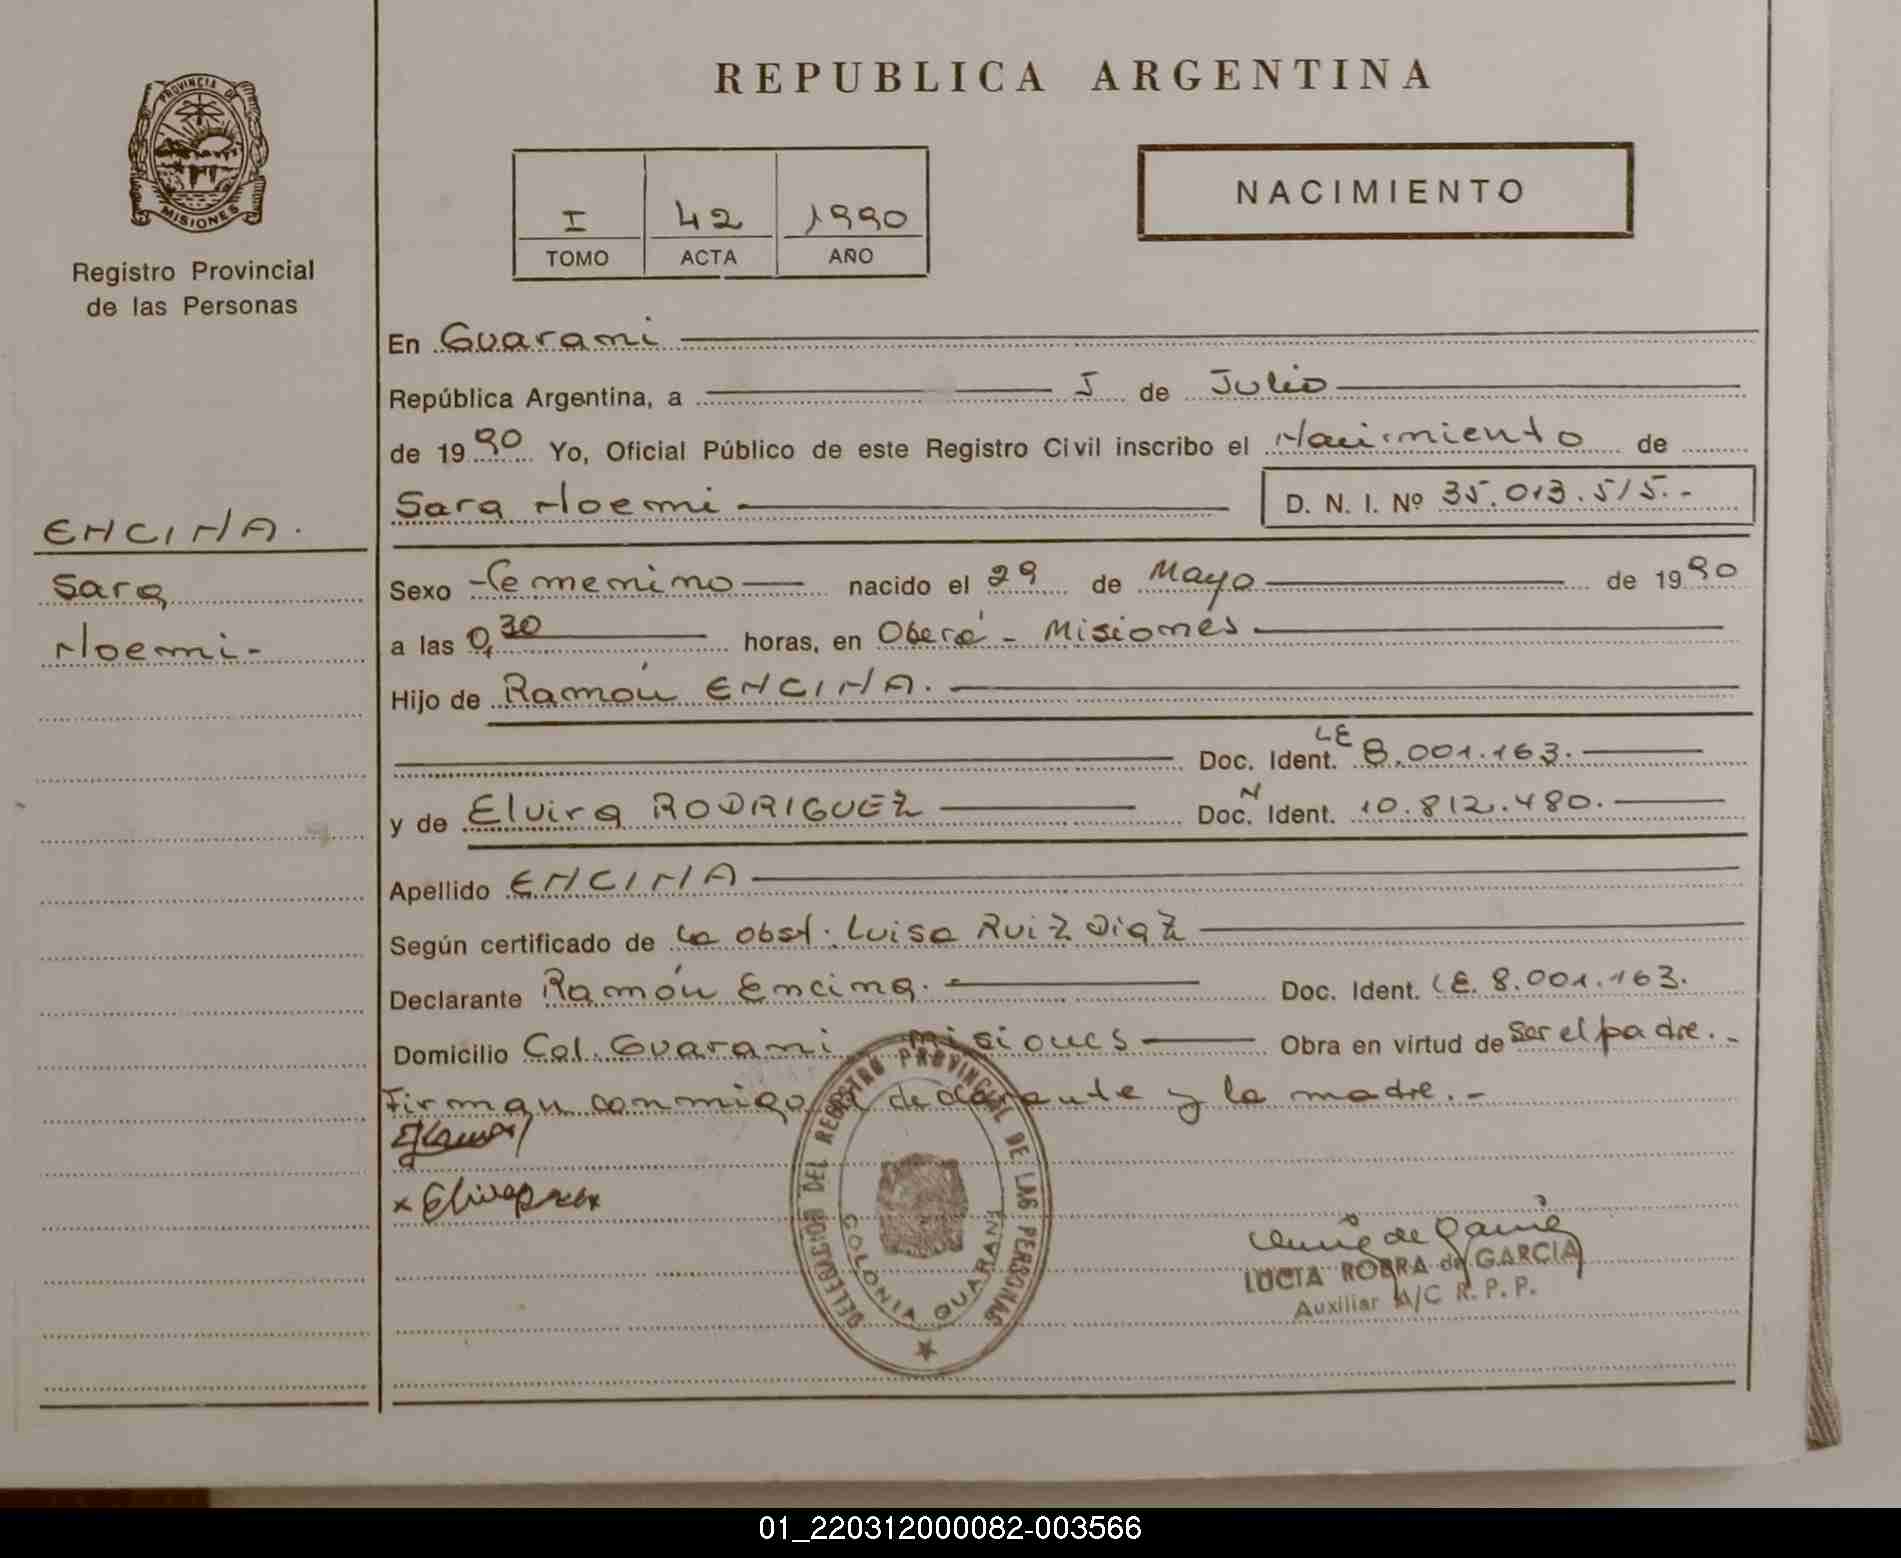 PROVINCIA DE
MISIONES
Registro Provincial
de las Personas
REPUBLICA ARGENTINA
NACIMIENTO
I 42 1990
TOMO ACTA AÑO
En Guarani
República Argentina, a 5 de Julio
de 1990 Yo, Oficial Público de este Registro Civil inscribo el Nacimiento de
Sara Noemi D. N. I. Nº 35.013.515.-
ENCINA.
Sara
Noemi-
Sexo Femenino nacido el 29 de Mayo de 1990
a las 0,30 horas, en Oberá - Misiones
Hijo de Ramón ENCINA.
Doc. Ident. LE 8.001.163.
y de Elvira RODRIGUEZ Doc. N Ident. 10.812.480.
Apellido ENCINA
Según certificado de la obst. Luisa Ruiz Diaz
Declarante Ramón Encina. Doc. Ident. LE. 8.001.163.
Domicilio Col. Guarani Misiones Obra en virtud de ser el padre.-
Firman conmigo el declarante y la madre.-
DELEGACION DEL REGISTRO PROVINCIAL DE LAS PERSONAS
COLONIA GUARANI
LUCIA ROBRA de GARCIA
Auxiliar A/C R. P. P.
01_220312000082-003566